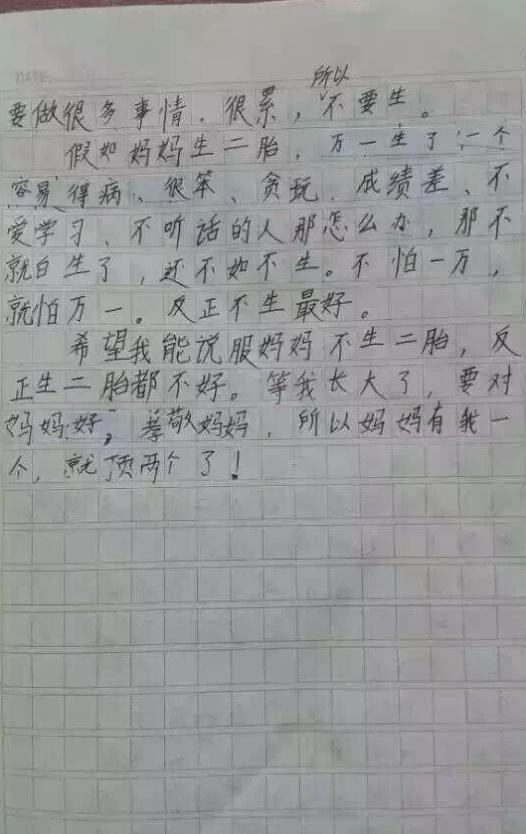 DATE
所以
要做很多事情，很累，不要生。
假如妈妈生二胎，万一生了一个
容易得病、很笨、贪玩、成绩差、不
爱学习、不听话的人那怎么办，那不
就白生了，还不如不生。不怕一万，
就怕万一。反正不生最好。
希望我能说服妈妈不生二胎，反
正生二胎都不好。等我长大了，要对
妈妈好，孝敬妈妈，所以妈妈有我一
个，就顶两个了！